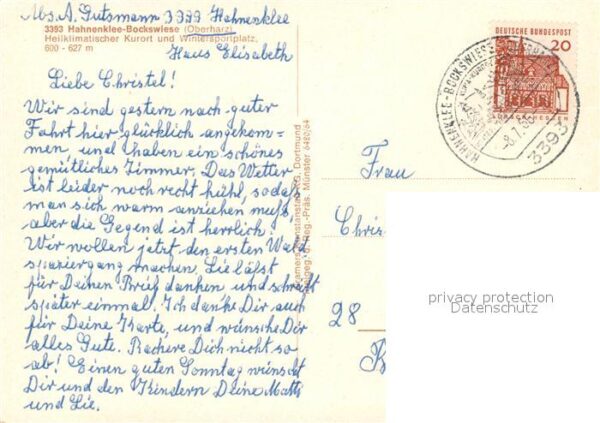 Abs. A. Gutsmann 3399 Hahnenklee
3393 Hahnenklee-Bockswiese (Oberharz)
Heilklimatischer Kurort und Wintersportplatz,
600 - 627 m
Haus Elisabeth
Liebe Christel!
Wir sind gestern nach guter
Fahrt hier glücklich angekom=
men und haben ein schönes
gemütliches Zimmer. Das Wetter
ist leider noch recht kühl, sodaß
man sich warm anziehen muß,
aber die Gegend ist herrlich.
Wir wollen jetzt den ersten Wald
spaziergang machen. Lie läßt
für Deinen Brief danken und schreibt
später einmal. Ich danke Dir auch
für Deine Karte, und wünsche Dir
alles Gute. Rackere Dich nicht so
ab! Einen guten Sonntag wünscht
Dir und den Kindern Deine Mutti
und Lie.
Cramers Kunstanstalt KG, Dortmund
Reg.-Präs. Münster
DEUTSCHE BUNDESPOST
20
LORSCH/HESSEN
HAHNENKLEE-BOCKSWIESE
3393
Frau
Chris
28
privacy protection
Datenschutz